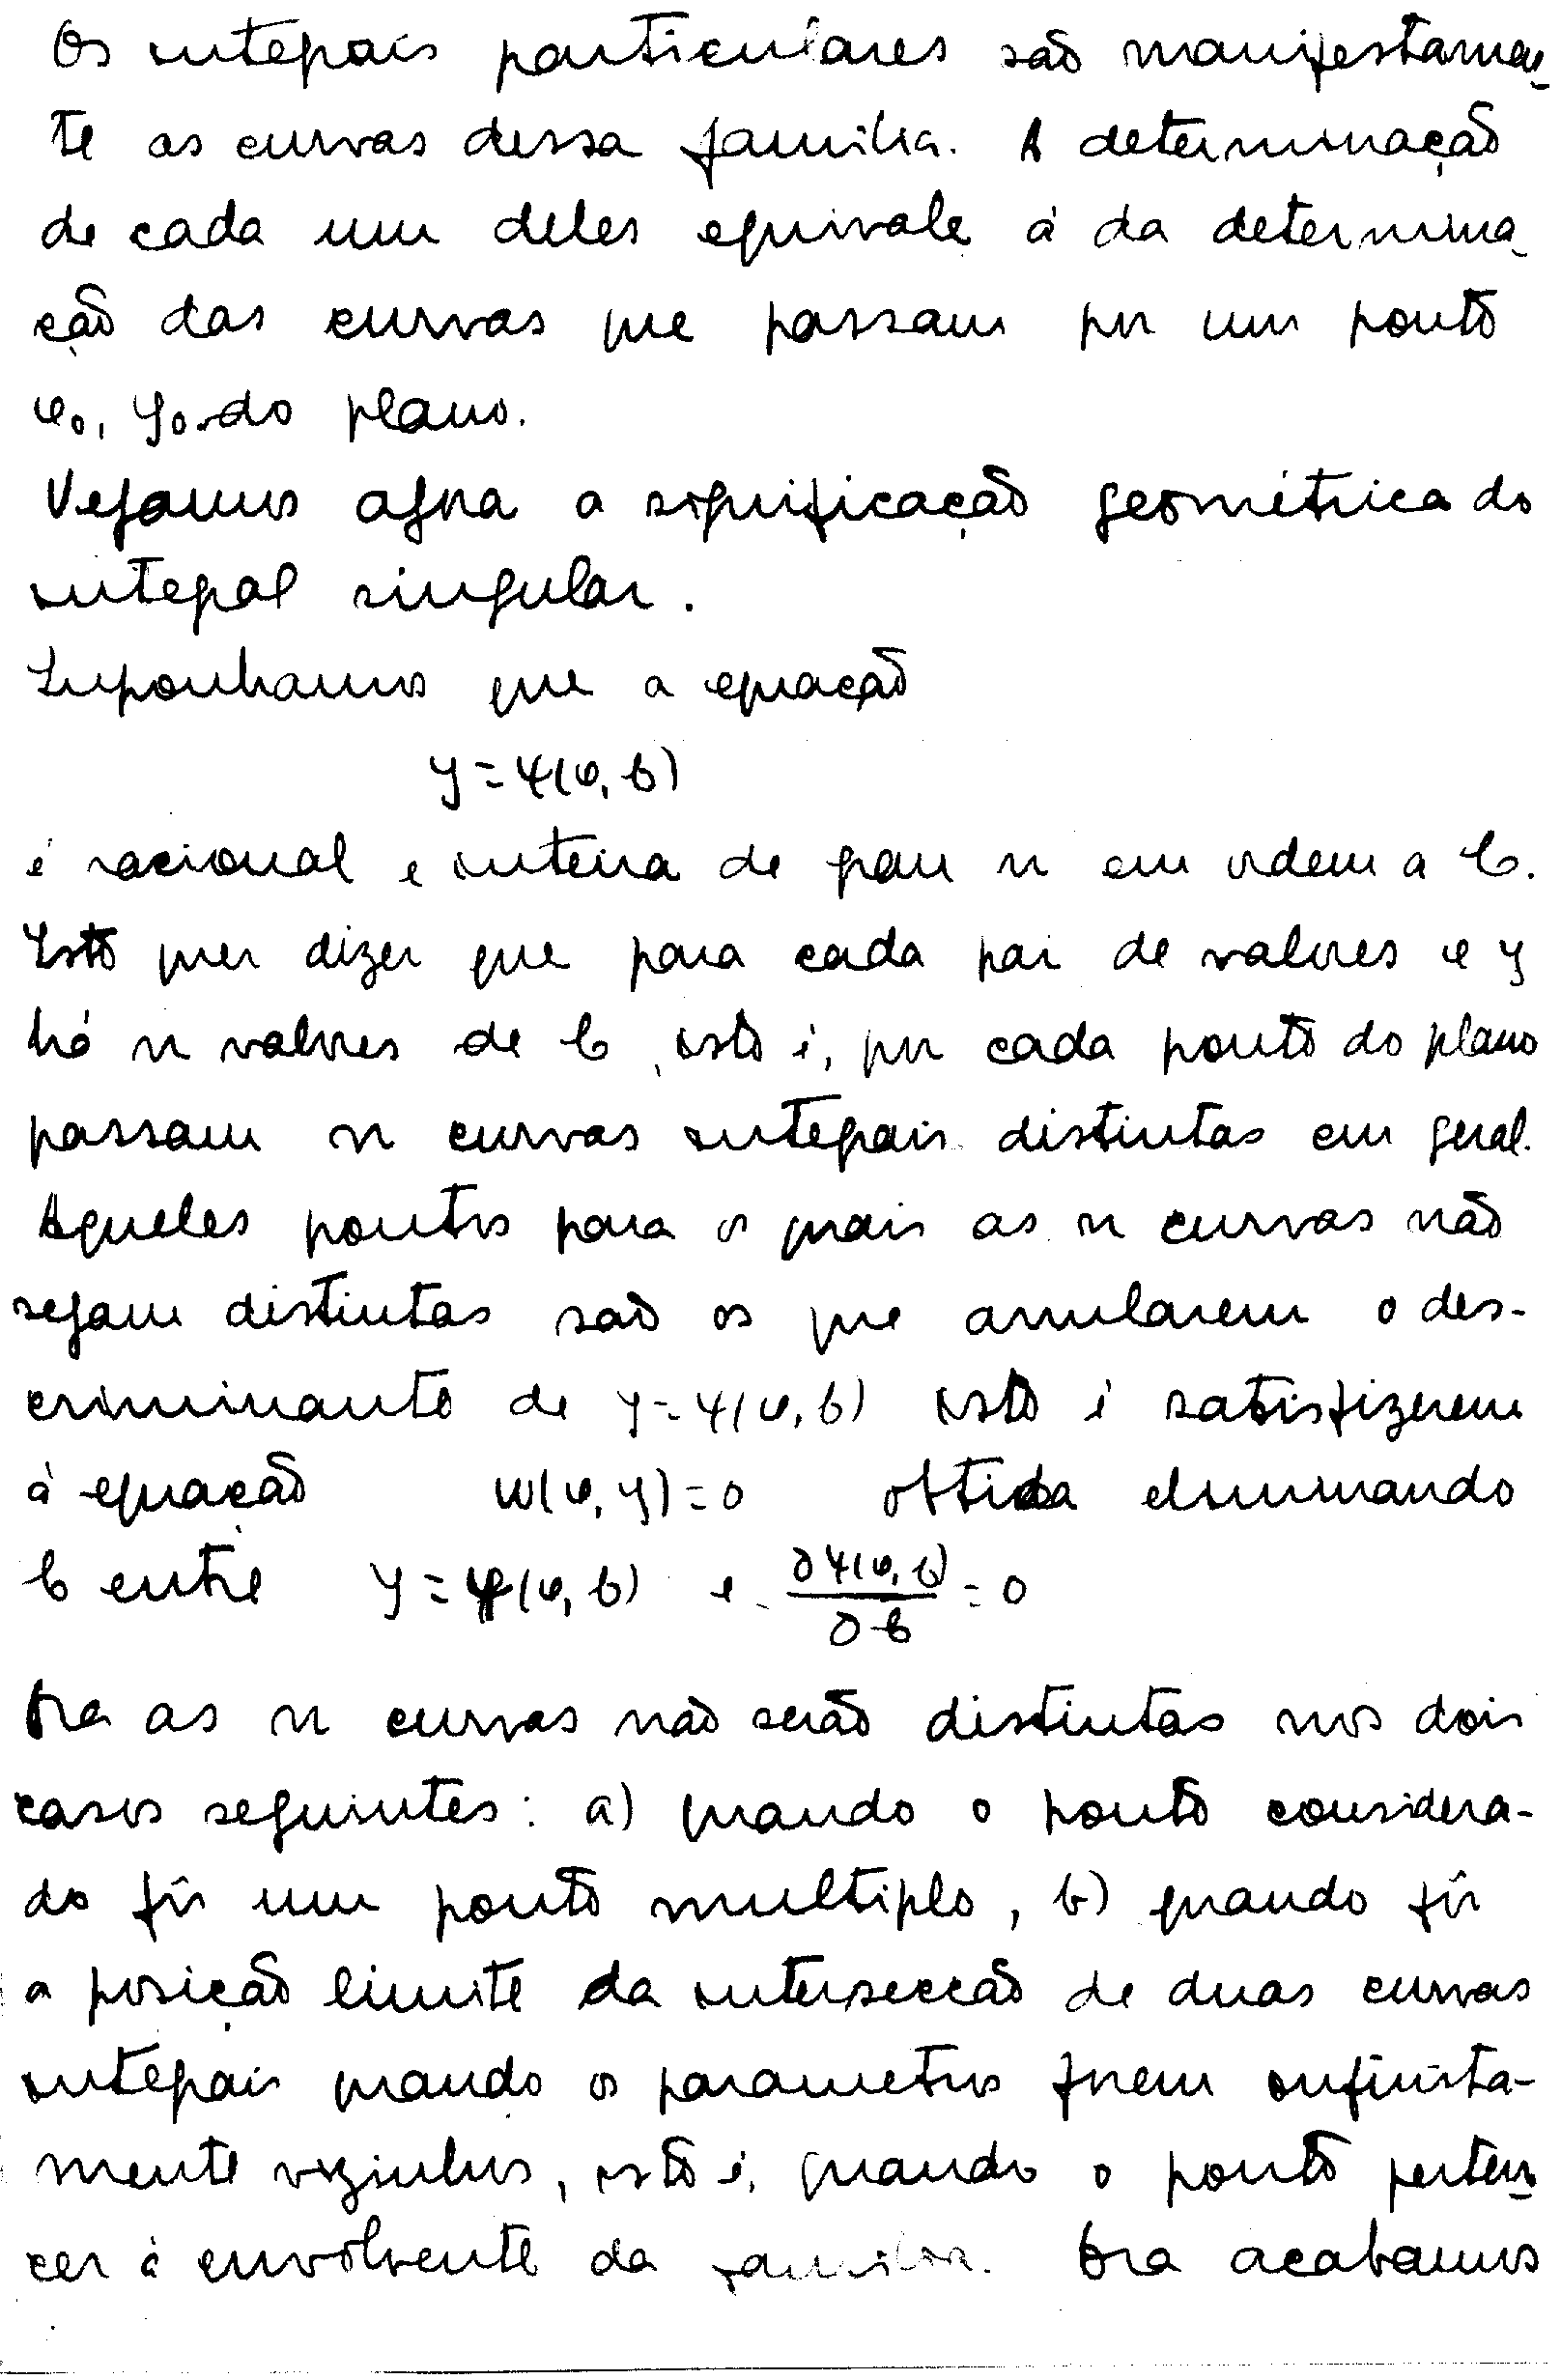 Os integrais particulares são manifestamen-
te as curvas dessa familia. A determinação
de cada um deles equivale á da determina-
ção das curvas que passam por um ponto
x₀, y₀ do plano.
Vejamos agora a significação geométrica do
integral singular.
Suponhamos que a equação
y = ψ(x, b)
é racional e inteira de grau n em ordem a b.
Isto quer dizer que para cada par de valores x y
há n valores de b, isto é, por cada ponto do plano
passam n curvas integrais distintas em geral.
Aqueles pontos para os quais as n curvas não
sejam distintas são os que anularem o des-
criminante de y = ψ(x, b) isto é satisfizerem
á equação w(x, y) = 0 obtida eliminando
b entre y = ψ(x, b) e ∂ψ(x, b)/∂b = 0
Ora as n curvas não serão distintas nos dois
casos seguintes: a) quando o ponto considera-
do fôr um ponto multiplo, b) quando fôr
a posição limite da intersecção de duas curvas
integrais quando os parametros forem infinita-
mente vizinhos, isto é, quando o ponto perten-
cer á envolvente da familia. Ora acabamos